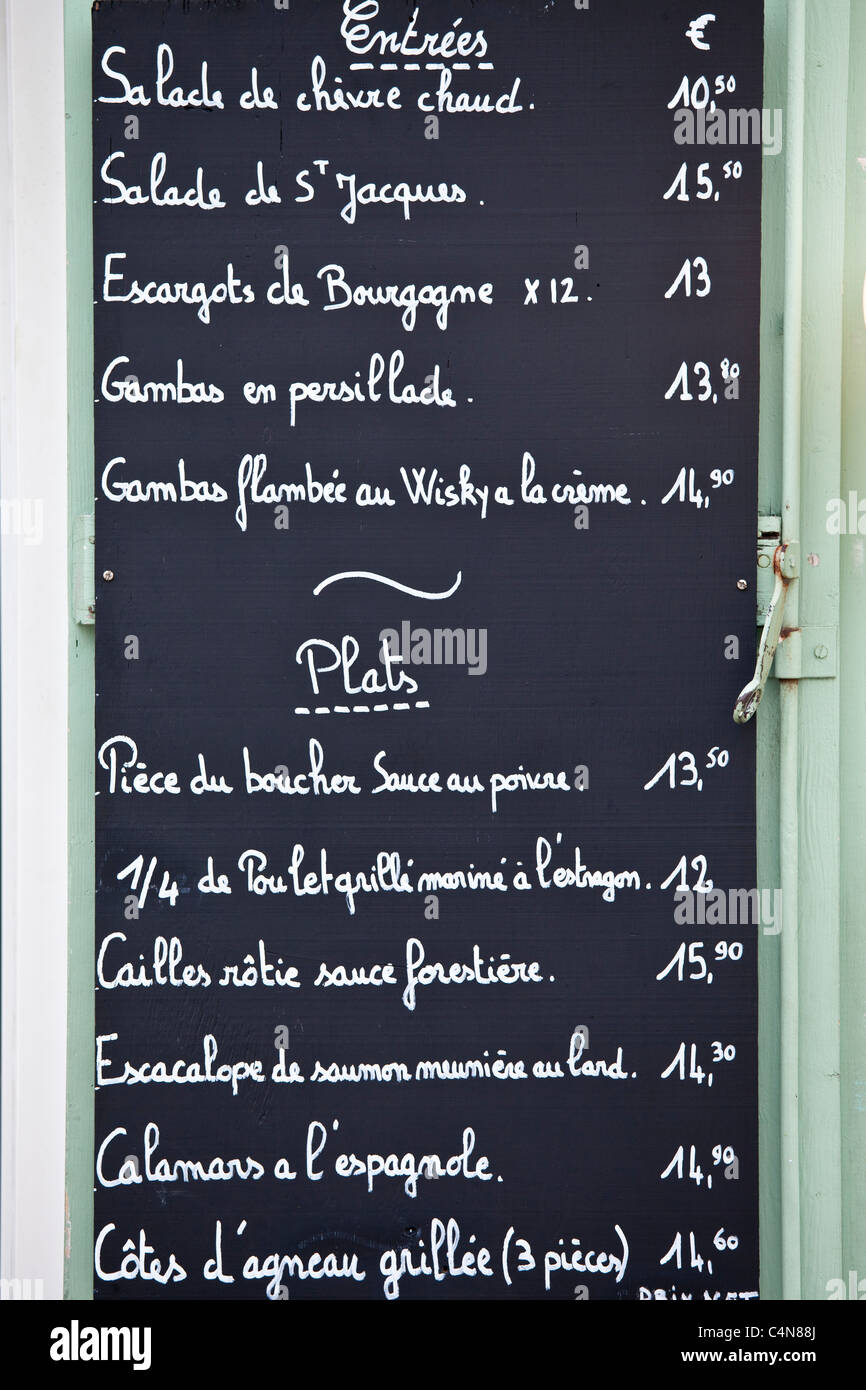 Entrées €
Salade de chèvre chaud. 10,50
Salade de ST Jacques. 15,50
Escargots de Bourgogne x 12. 13
Gambas en persillade. 13,80
Gambas flambée au Wisky a la crème. 14,90
Plats
Pièce du boucher Sauce au poivre. 13,50
1/4 de Poulet grillé mariné à l'éstragon. 12
Cailles rôtie sauce forestiére. 15,90
Escacalope de saumon meuniére au lard. 14,30
Calamars a l'espagnole. 14,90
Côtes d'agneau grillée (3 pièces) 14,60
PRIX NET
alamy
Image ID: C4N88J
www.alamy.com